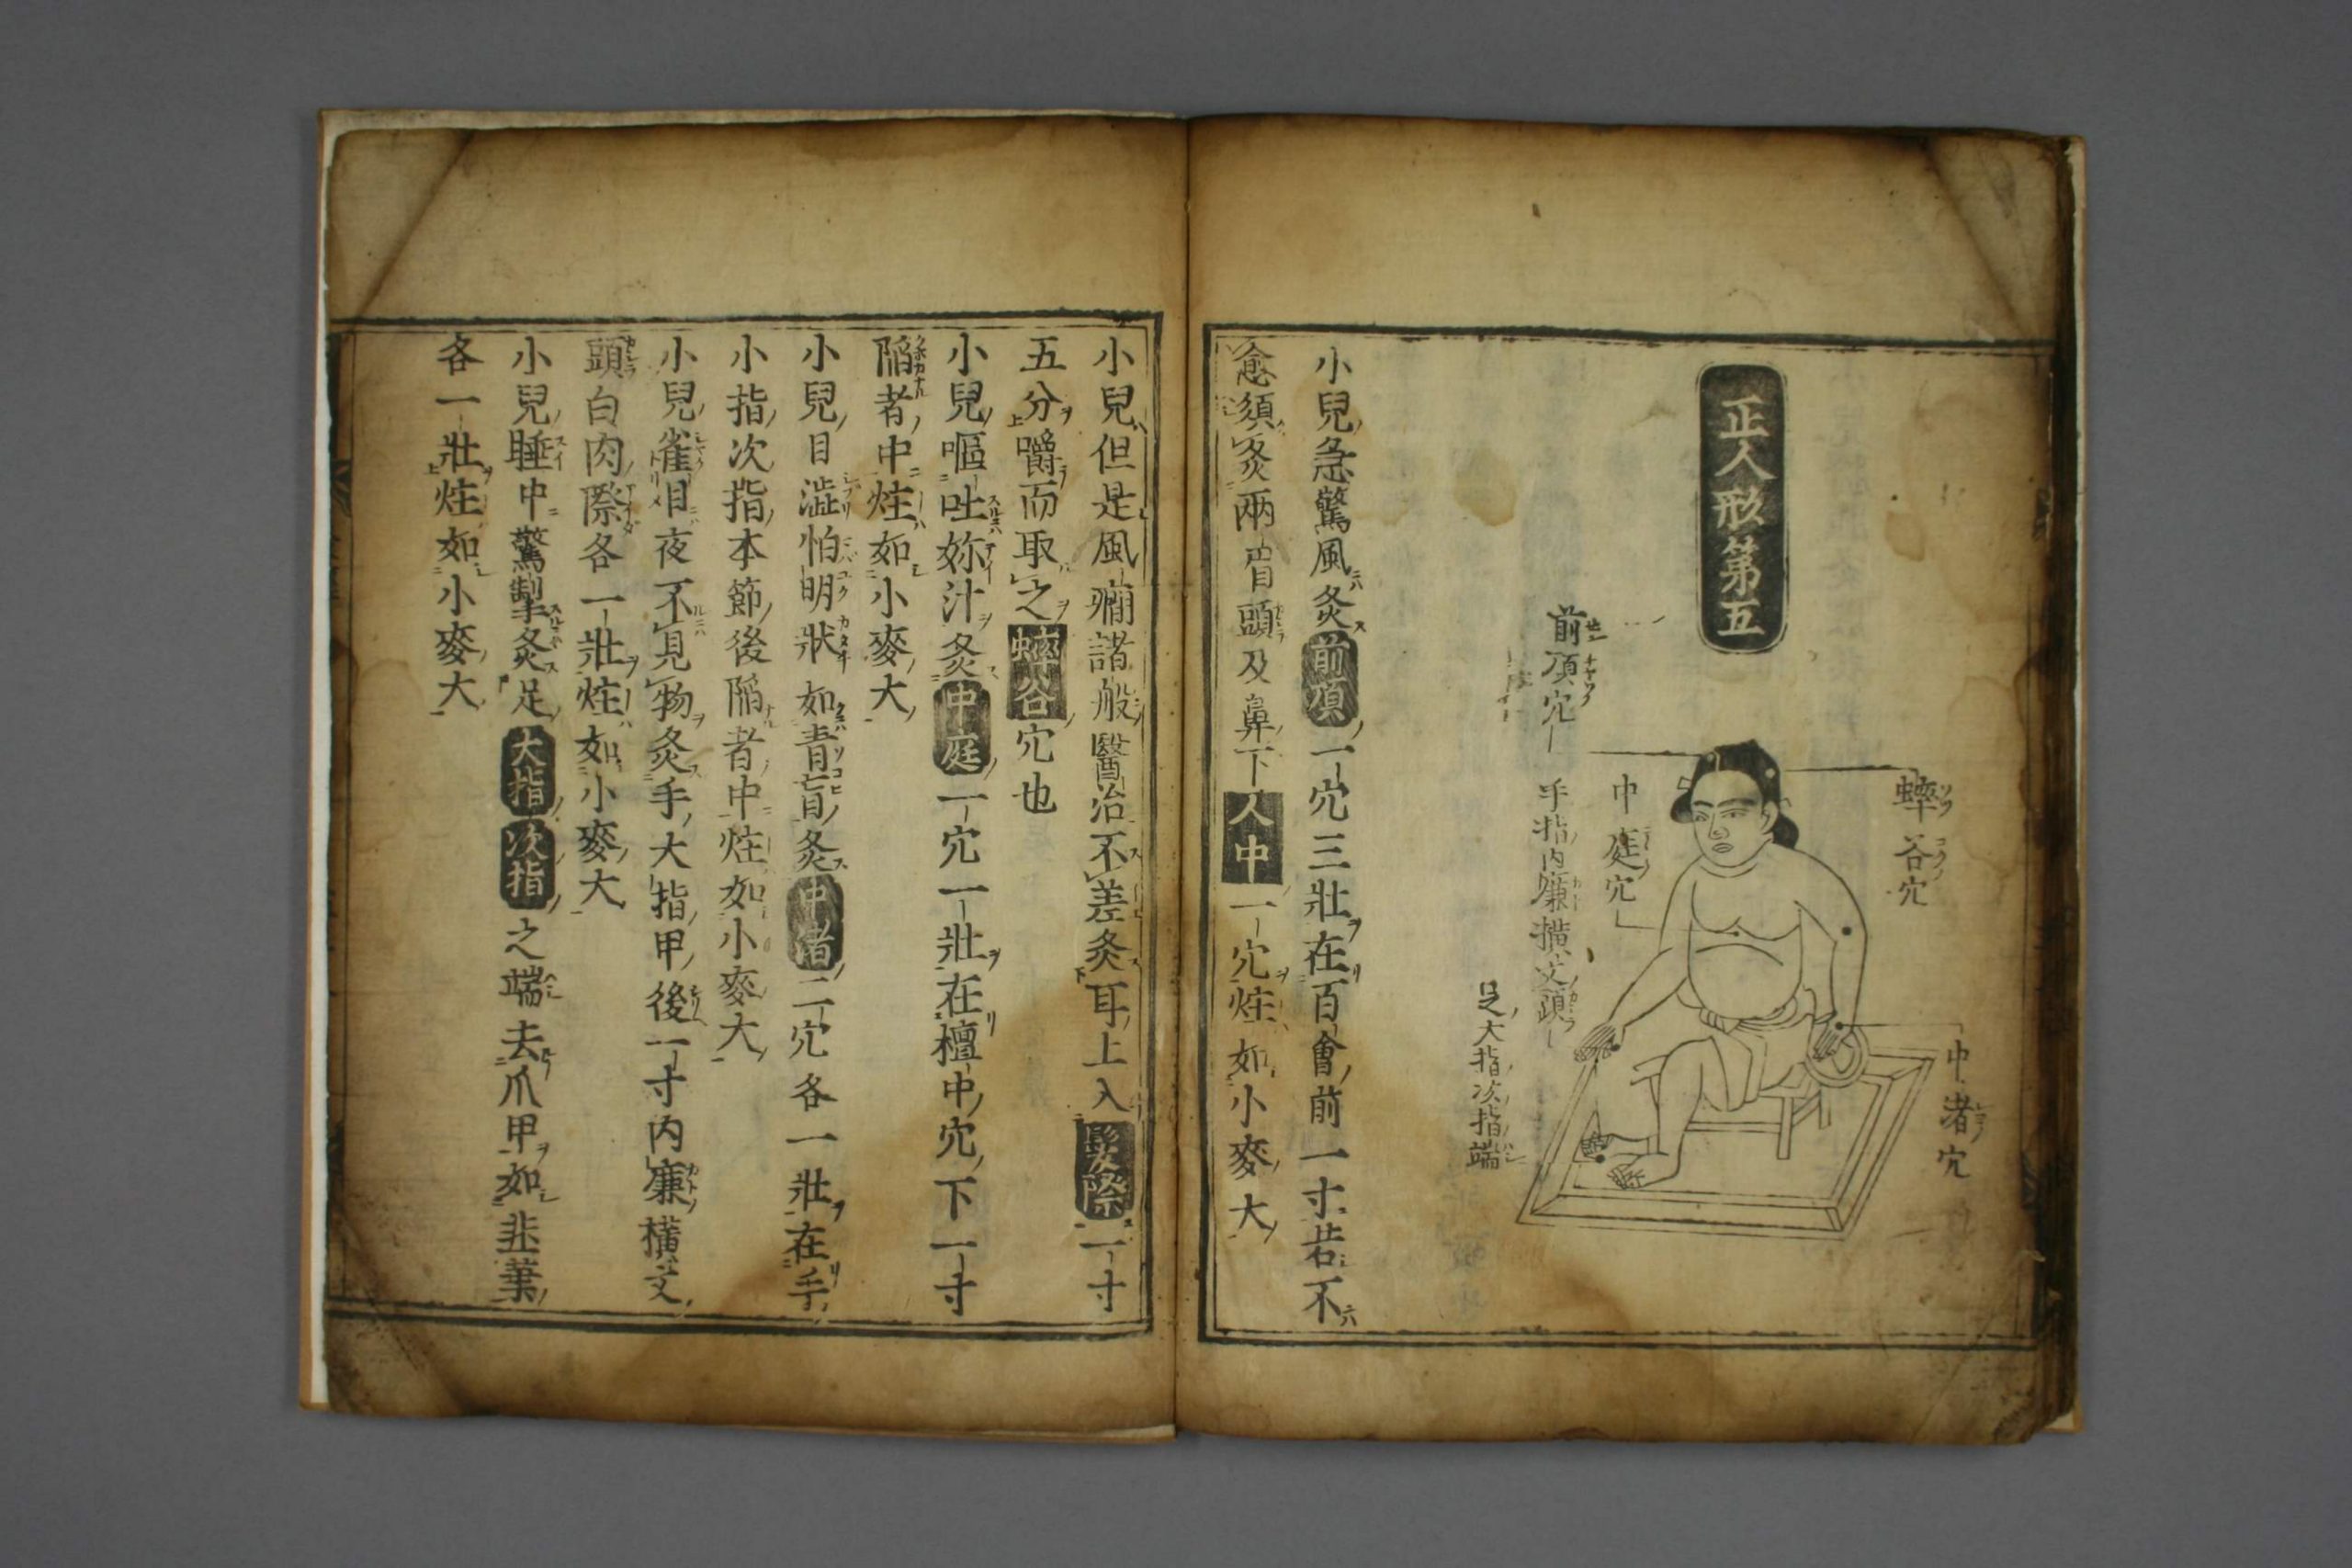 正人形第五
蟀谷穴
中渚穴
前項穴
中庭穴
手指内廉横文頭
足大指次指端
小兒急驚風灸前項一穴三壯在百會前一寸若不
愈須灸兩眉頭及鼻下人中一穴炷如小麥大
小兒但是風癇諸般醫治不差灸耳上入髮際一寸
五分嚼而取之蟀谷穴也
小兒嘔吐妳汁灸中庭一穴一壯在檀中穴下一寸
陥者中炷如小麥大
小兒目澁怕明狀如青盲灸中渚二穴各一壯在手
小指次指本節後陥者中炷如小麥大
小兒雀目夜不見物灸手大指甲後一寸内廉横文
頭白肉際各一壯炷如小麥大
小兒睡中驚掣灸足大指次指之端去爪甲如韭葉
各一壯炷如小麥大